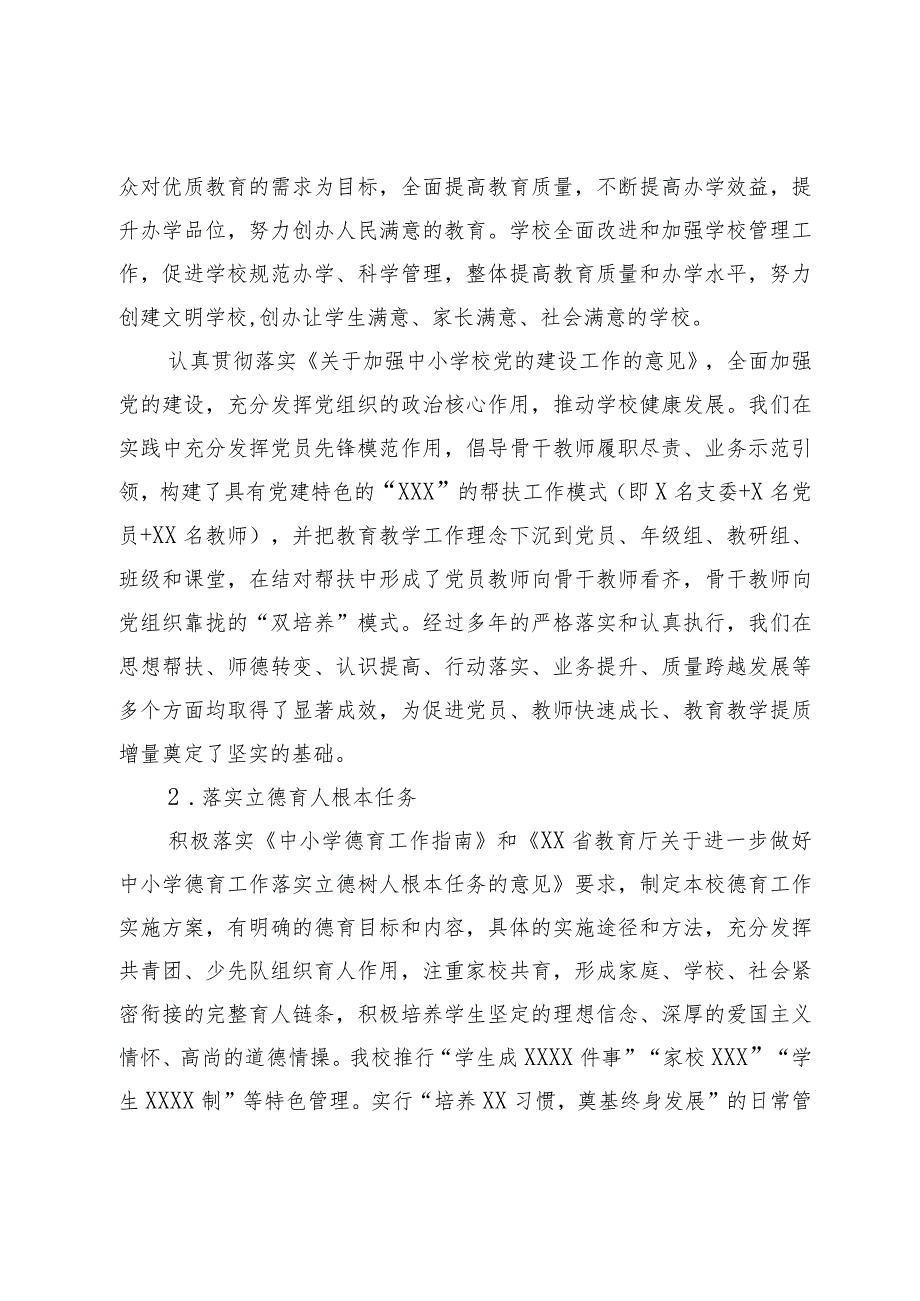 众对优质教育的需求为目标，全面提高教育质量，不断提高办学效益，提
升办学品位，努力创办人民满意的教育。学校全面改进和加强学校管理工
作，促进学校规范办学、科学管理，整体提高教育质量和办学水平，努力
创建文明学校,创办让学生满意、家长满意、社会满意的学校。
认真贯彻落实《关于加强中小学校党的建设工作的意见》，全面加强
党的建设，充分发挥党组织的政治核心作用，推动学校健康发展。我们在
实践中充分发挥党员先锋模范作用，倡导骨干教师履职尽责、业务示范引
领，构建了具有党建特色的“XXX”的帮扶工作模式（即 X 名支委+X 名党
员+XX 名教师），并把教育教学工作理念下沉到党员、年级组、教研组、
班级和课堂，在结对帮扶中形成了党员教师向骨干教师看齐，骨干教师向
党组织靠拢的“双培养”模式。经过多年的严格落实和认真执行，我们在
思想帮扶、师德转变、认识提高、行动落实、业务提升、质量跨越发展等
多个方面均取得了显著成效，为促进党员、教师快速成长、教育教学提质
增量奠定了坚实的基础。
2.落实立德育人根本任务
积极落实《中小学德育工作指南》和《XX 省教育厅关于进一步做好
中小学德育工作落实立德树人根本任务的意见》要求，制定本校德育工作
实施方案，有明确的德育目标和内容，具体的实施途径和方法，充分发挥
共青团、少先队组织育人作用，注重家校共育，形成家庭、学校、社会紧
密衔接的完整育人链条，积极培养学生坚定的理想信念、深厚的爱国主义
情怀、高尚的道德情操。我校推行“学生成 XXXX 件事”“家校 XXX”“学
生 XXXX 制”等特色管理。实行“培养 XX 习惯，奠基终身发展”的日常管